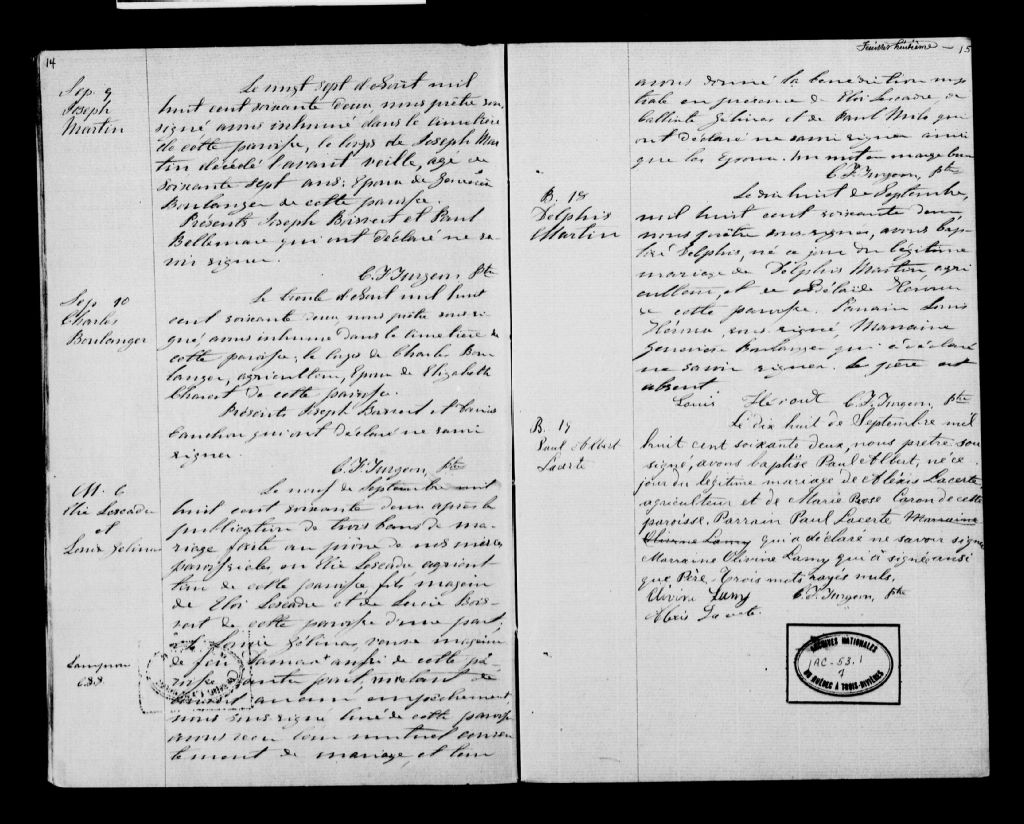 14
Sep. 9
Joseph
Martin
Le vingt sept d'Août mil
huit cent soixante deux nous prêtre sous
signé avons inhumé dans le cimetière
de cette paroisse, le corps de Joseph Mar
tin décédé l'avant veille, agé de
soixante sept ans; Epoux de Geneviève
Boulanger de cette paroisse.
Présents Joseph Boisvert et Paul
Bellemare qui ont déclaré ne sa-
voir signer.
C. F. Turgeon Ptre
Sep. 10
Charles
Boulanger
Le trente d'Août mil huit
cent soixante deux, nous prêtre sous si-
gné, avons inhumé dans le cimetière de
cette paroisse, le corps de Charles Bou
langer, agriculteur, Epoux de Elizabeth
de cette paroisse.
Présents Joseph Boisvert et
qui ont déclaré ne savoir
signer.
C. F. Turgeon, ptre
M. 6
Elie Lescadre
et
Louise Gélinas
Le neuf de Septembre mil
huit cent soixante deux après la
publication de trois bans de ma-
riage faite au prône de nos messes
paroissiales entre Elie Lescadre agricul
teur de cette paroisse fils majeur
de Eloi Lescadre et de Lucie Bois
vert de cette paroisse d'une part;
et Louise Gélinas, veuve majeure
de feu aussi de cette pa-
roisse autre part,
aucun empêchement
nous sous signé Curé de cette paroisse
avons reçu leur mutuel consen
tement de mariage, et leur
Feuillet huitième — 15
avons donné la bénédiction nup
tiale en présence de Eloi Lescadre, de
Gélinas et de Paul qui
ont déclaré ne savoir signer ainsi
que les Epoux. Un mot en marge bon
C. F. Turgeon, Ptre
B. 18
Delphis
Martin
Le dix huit de Septembre,
mil huit cent soixante deux
nous prêtre sous signé, avons bap-
tisé Delphis, né ce jour du légitime
mariage de Delphis Martin, agri
culteur, et de Adélaide
de cette paroisse. Parrain Louis
sous signé, Marraine
Geneviève Boulanger qui a déclaré
ne savoir signer. Le père est
absent
Louis C. F. Turgeon, Ptre
B. 19
Paul Albert
Lacerte
Le dix huit de Septembre mil
huit cent soixante deux, nous pretre sou
signé, avons baptisé Paul Albert, né ce
jour du légitime mariage de Aléxis Lacerte
agriculteur et de Marie Rose Caron de cette
paroisse. Parrain Paul Lacerte Marraine
Olivine Lamy qui a déclaré ne savoir signer
Marraine Olivine Lamy qui a signé ainsi
que Père. Trois mots rayés nuls.
Olivine Lamy C. F. Turgeon, Ptre
Alexis Lacerte.
ARCHIVES NATIONALES
AC-53.1
7
DU QUÉBEC À TROIS-RIVIÈRES